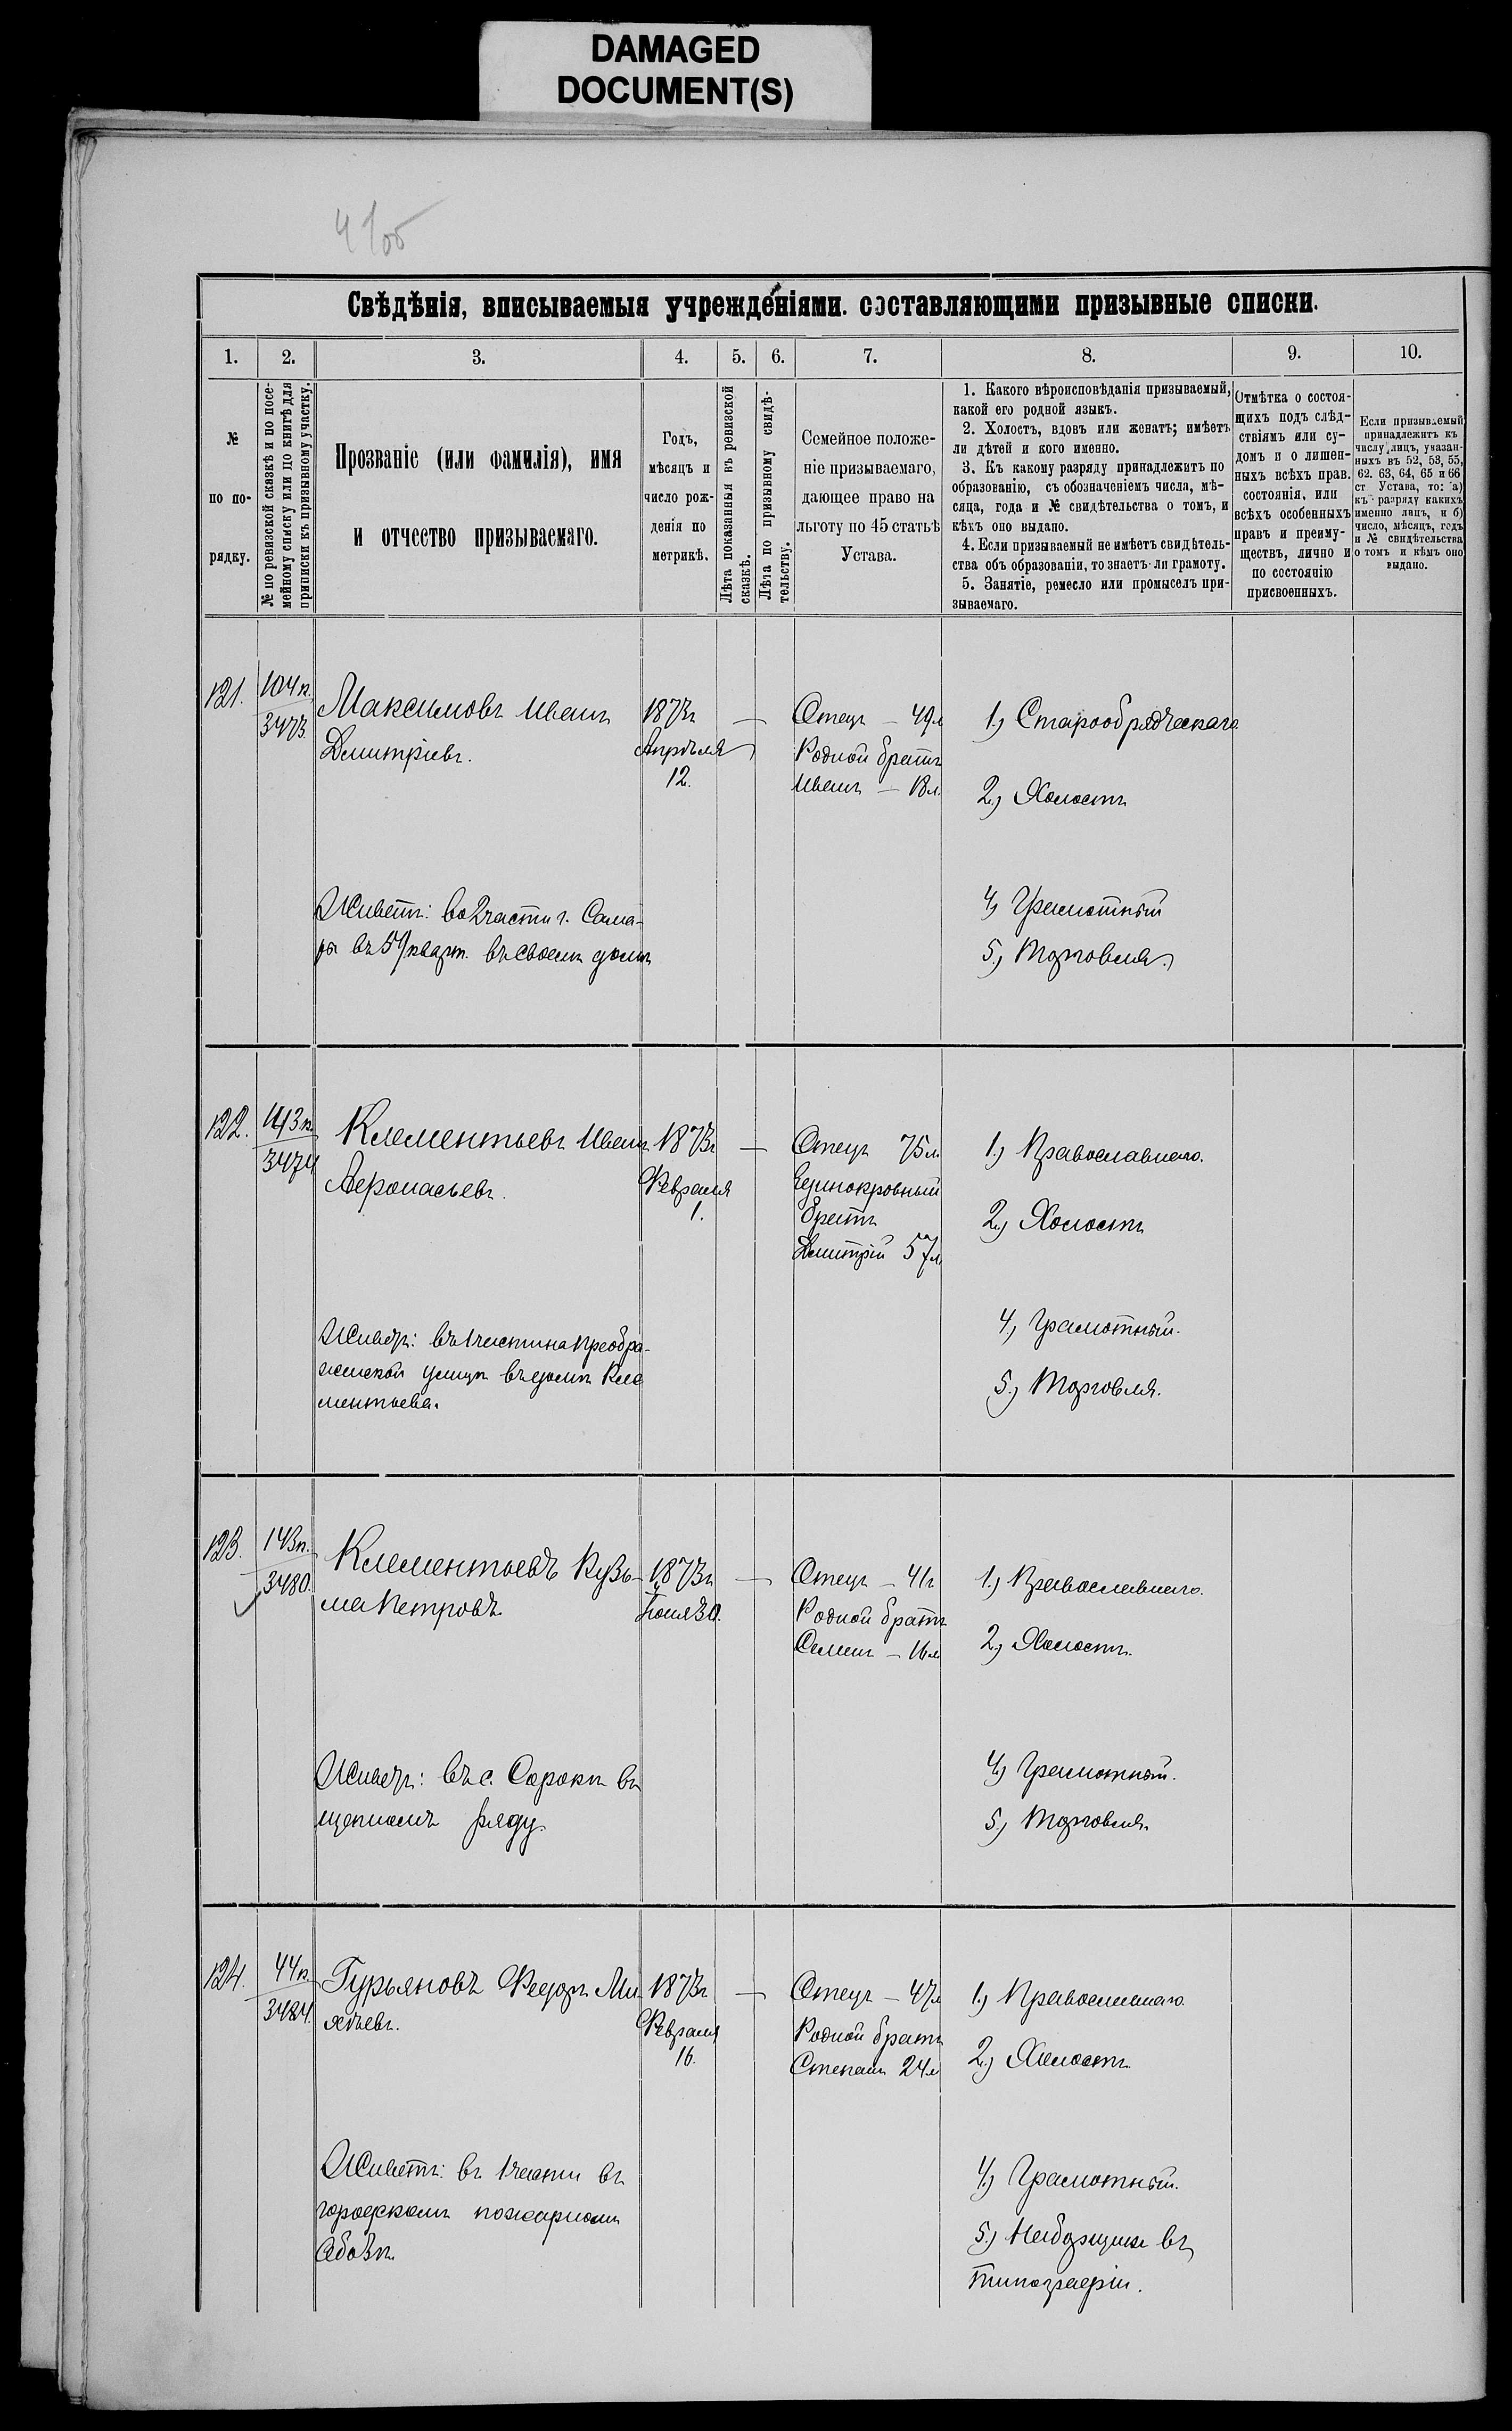 DAMAGED
DOCUMENT(S)
Свѣдѣнія, вписываемыя учрежденіями. составляющими призывные списки.
1. 2. 3. 4. 5. 6. 7. 8. 9. 10.
№
по по-
рядку.
№ по ревизской сказкѣ и по посе-
мейному списку или по книгѣ для
приписки къ призывному участку.
Прозваніе (или фамилія), имя
и отчество призываемаго.
Годъ,
мѣсяцъ и
число рож-
денія по
метрикѣ.
Лѣта показанныя въ ревизской
сказкѣ.
Лѣта по призывному свидѣ-
тельству.
Семейное положе-
ніе призываемаго,
дающее право на
льготу по 45 статьѣ
Устава.
1. Какого вѣроисповѣданія призываемый,
какой его родной языкъ.
2. Холостъ, вдовъ или женатъ; имѣетъ
ли дѣтей и кого именно.
3. Къ какому разряду принадлежитъ по
образованію, съ обозначеніемъ числа, мѣ-
сяца, года и № свидѣтельства о томъ, и
кѣмъ оно выдано.
4. Если призываемый не имѣетъ свидѣтель-
ства объ образованіи, то знаетъ-ли грамоту.
5. Занятіе, ремесло или промыселъ при-
зываемаго.
Отмѣтка о состоя-
щихъ подъ слѣд-
ствіямъ или су-
домъ и о лишен-
ныхъ всѣхъ прав.
состоянія, или
всѣхъ особенныхъ
правъ и преиму-
ществъ, лично и
по состоянію
присвоенныхъ.
Если призываемый
принадлежитъ къ
числу лицъ, указан-
ныхъ въ 52, 53, 55,
62. 63, 64, 65 и 66
ст Устава, то: а)
къ разряду какихъ
именно лицъ, и б)
число, мѣсяцъ, годъ
и № свидѣтельства
о томъ и кѣмъ оно
выдано.
121. 104 п. 3473.
Максимовъ Иванъ
Дмитріевъ.
1873г
Апрѣля
12.
Отецъ — 49л
Родной братъ
Иванъ — 18л.
1.) Старообрядческаго
2.) Холостъ
Живетъ: во 2 части г. Сама-
ры въ 57 кварт. въ своемъ домѣ
4.) Грамотный
5.) Торговля.
122. 143 п. 3474
Клементьевъ Иванъ
Афонасьевъ.
1873г
Февраля
1.
Отецъ 75л.
Единокровный
братъ
Дмитрій 57л
1.) Православнаго.
2.) Холостъ
Живетъ: въ 1 части на Преобра-
женской улицѣ въ домѣ Кле
ментьева.
4.) Грамотный.
5.) Торговля.
123. 143 п. 3480.
Клементьевъ Кузь-
ма Петровъ.
1873г
Отецъ — 41г
Родной братъ
Семенъ — 16л
1.) Православнаго.
2.) Холостъ.
Живетъ: въ с. Сорокѣ въ
щепномъ ряду.
4.) Грамотный.
5.) Торговля.
124. 44 п. 3484.
Гурьяновъ Федоръ Ми
хѣевъ.
1873г
Февраля
16.
Отецъ — 47л
Родной братъ
Степанъ 24л
1.) Православнаго.
2.) Холостъ.
Живетъ: въ 1 части въ
городскомъ пожарномъ
обозѣ.
4.) Грамотный.
5.) Наборщикъ въ
типографіи.